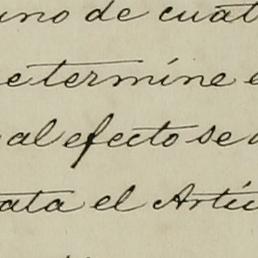 uno de cuat
etermine e
al efecto se
ata el Artíc